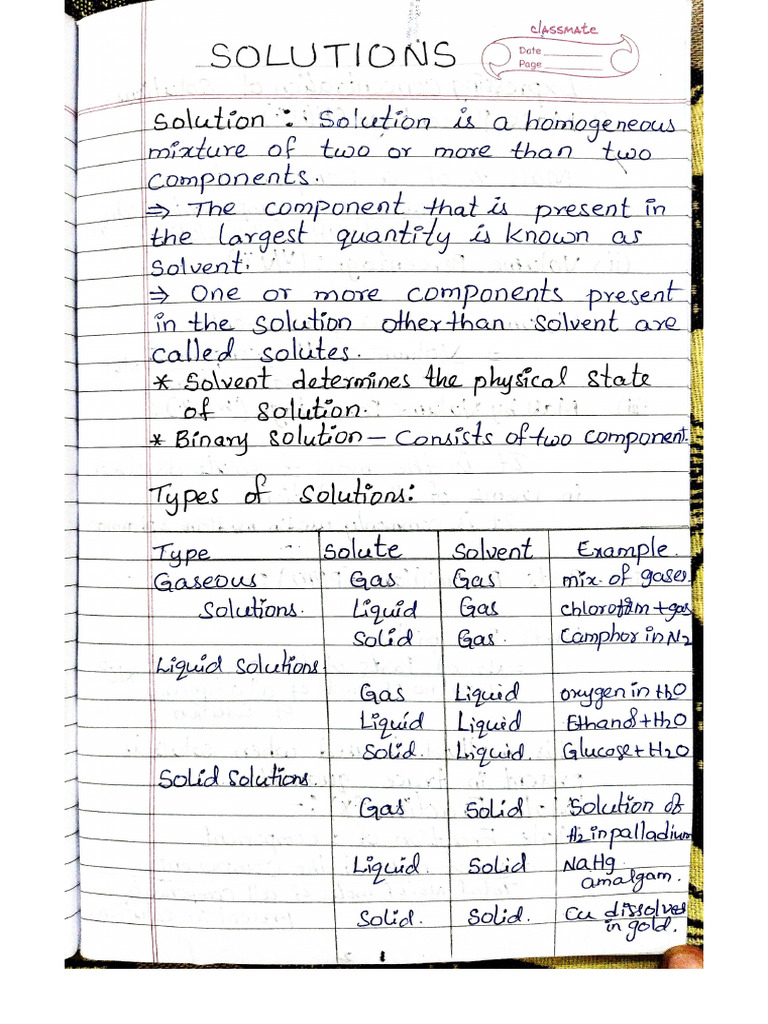 classmate
SOLUTIONS
Date
Page
Solution : Solution is a homogeneous
mixture of two or more than two
components.
⇒ The component that is present in
the largest quantity is known as
solvent.
⇒ One or more components present
in the solution other than solvent are
called solutes.
* Solvent determines the physical state
of solution.
* Binary solution – Consists of two component.
Types of solutions:
Type Solute Solvent Example.
Gaseous Gas Gas mix. of gases
Solutions. Liquid Gas chloroform + gas
Solid Gas. Camphor in N2
Liquid solutions
Gas Liquid oxygen in H2O
Liquid Liquid Ethanol + H2O
Solid. Liquid. Glucose + H2O
Solid Solutions.
Gas Solid Solution of
H2 in palladium
Liquid. Solid NaHg
amalgam.
Solid. Solid. Cu dissolves
in gold.
1